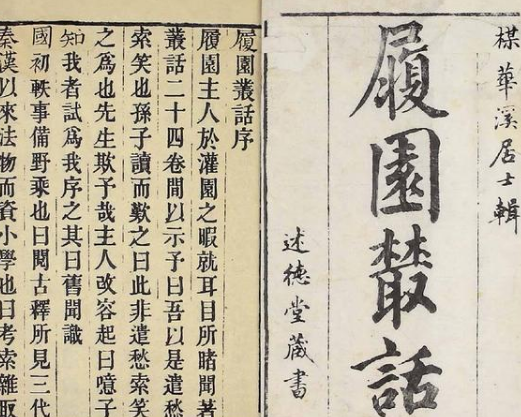 楳華溪居士輯
履園叢話
述德堂藏書
履園叢話序
履園主人於灌園之暇就耳目所睹聞著
叢話二十四卷間以示予曰吾以是遣愁
索笑也孫子讀而歎之曰此非遣愁索笑
之爲也先生欺予哉主人改容起曰噫子
知我者試爲我序之其曰舊聞識
國初軼事備野乘也曰閱古釋所見三代
秦漢以來法物而資小學也曰考索雜取